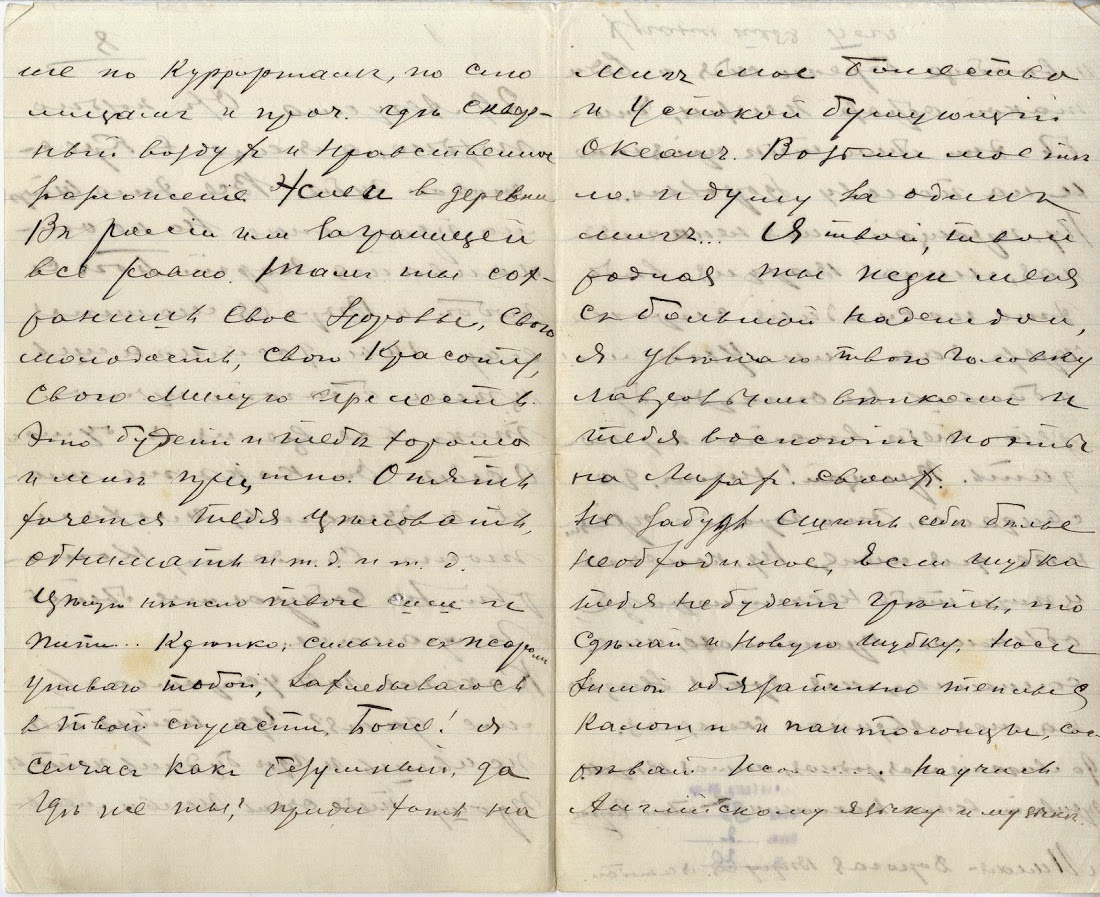 ше по Куррортамъ, по сто
лицамъ и проч. гдѣ сквер-
ный воздухъ и нравственное
разложение. Живи в деревни
Въ россіи или Заграницей
все равно. Тамъ ты сох-
ранишь свое Здоровье, свою
молодость, свою Красоту,
свою милую прелесть.
Это будетъ и тебѣ хорошо
и мнѣ приятно. Опять
хочется тебя цѣловать,
обнимать и т. д. и т. д.
Цѣлую нѣжно твое
Крѣпко, сильно съ жаром
упиваюсь тобой, Захлебываюсь
в твоей страсти. Боже! я
сейчасъ какъ безумный, да
Гдѣ же ты! приди хоть на
8
мигъ мое Божество
и Успокой бушующій
Океанъ. Возьми мое тѣ
ло и душу за одинъ
мигъ... Я твой, твой
родная ты жди меня
съ большой надеждой,
я увѣнчаю твою головку
Лавровыми вѣнками и
тебя воспоютъ поэты
на Лирах своихъ.
Не забудь сшить себѣ бѣлье
необходимое, Если шубка
тебя не будетъ грѣть, то
сдѣлай и новую шубку, носи
Зимой обязательно теплыя
калоши и панталоны,
Научись
Английскому языку и музыки.